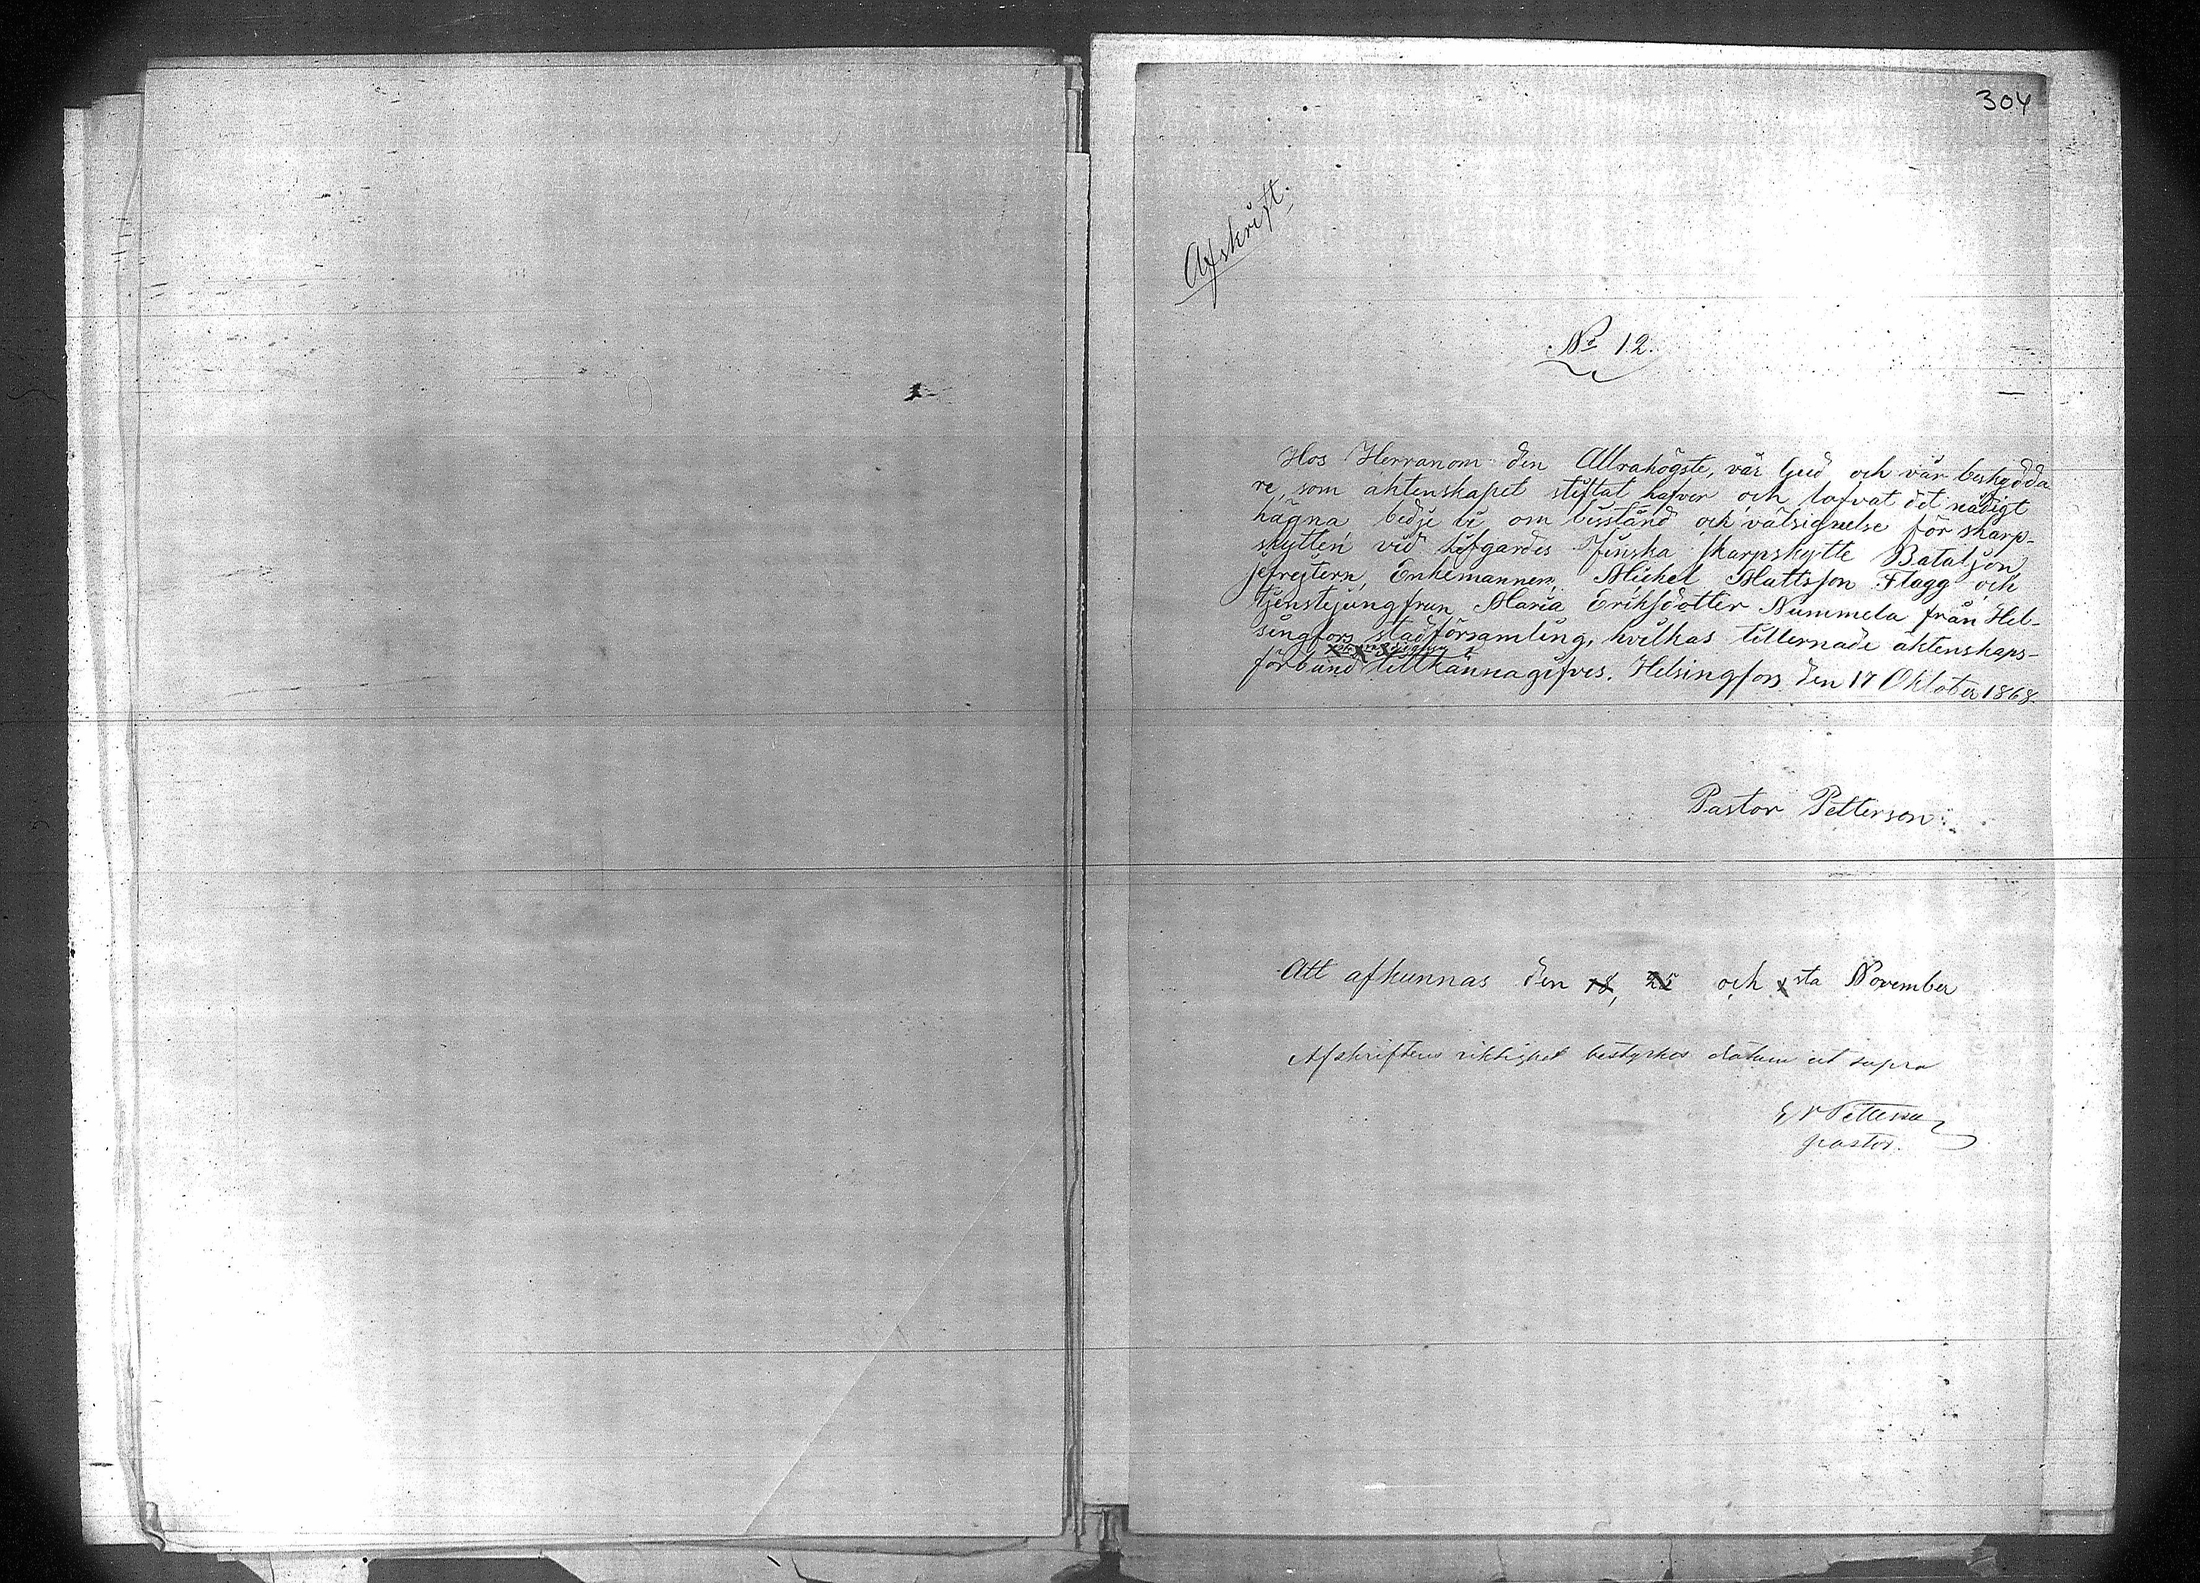 304
Afskrift.
No 12.
Hos Herranom den Allrahögste, vår Gud och vår beskydda-
re, som äktenskapet stiftat hafver och lofvat det nådigt
hägna bedje vi om bistånd och välsignelse för skarp-
skytten vid Lifgardes Finska Skarpskytte Bataljon
jefrejtern, Enkemannen Michel Mattsson Flagg och
tjenstejungfrun Maria Eriksdotter Nummela från Hel-
singfors stadförsamling, hvilkas tillernade äktenskaps-
förbund tillkännagifves. Helsingfors den 17 Oktober 1868.
Pastor Petterson.
Att afkunnas den 18, 25 och 1sta November
Afskriftens riktighet bestyrkes datum ut supra
Petterson
pastor.